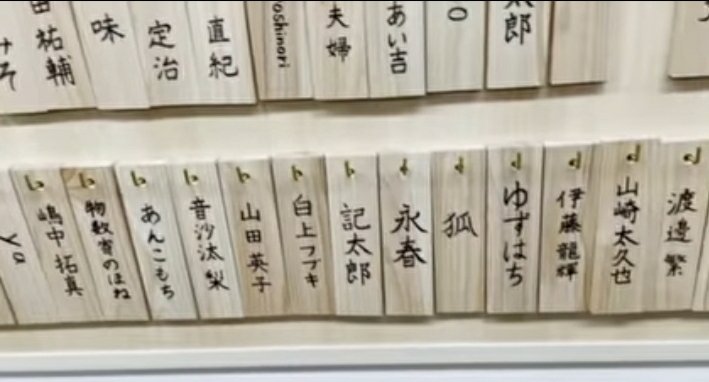 太郎
o
あい吉
夫婦
oshinori
直紀
定治
味
田祐輔
渡邊繁
山崎太久也
伊藤龍輝
ゆずはち
狐
永春
記太郎
白上フブキ
山田英子
音沙汰梨
あんこもち
物数寄のほね
嶋中拓真
ya